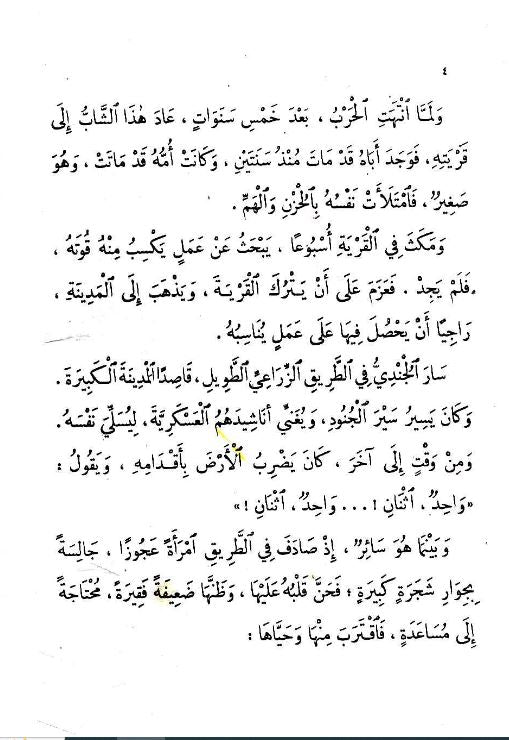 ٤
وَلَمَّا ٱنْتَهَتِ ٱلْحَرْبُ ، بَعْدَ خَمْسِ سَنَوَاتٍ ، عَادَ هٰذَا ٱلشَّابُّ إِلَى
قَرْيَتِهِ، فَوَجَدَ أَبَاهُ قَدْ مَاتَ مُنْذُ سَنَتَيْنِ ، وَكَانَتْ أُمُّهُ قَدْ مَاتَتْ ، وَهُوَ
صَغِيرٌ ، فَٱمْتَلَأَتْ نَفْسُهُ بِٱلْحُزْنِ وَٱلْهَمِّ .
وَمَكَثَ فِي ٱلْقَرْيَةِ أُسْبُوعًا ، يَبْحَثُ عَنْ عَمَلٍ يَكْسِبُ مِنْهُ قُوتَهُ ،
فَلَمْ يَجِدْ . فَعَزَمَ عَلَى أَنْ يَتْرُكَ ٱلْقَرْيَةَ ، وَيَذْهَبَ إِلَى ٱلْمَدِينَةِ ،
رَاجِيًا أَنْ يَحْصُلَ فِيهَا عَلَى عَمَلٍ يُنَاسِبُهُ .
سَارَ ٱلْجُنْدِيُّ فِي ٱلطَّرِيقِ ٱلزِّرَاعِيِّ ٱلطَّوِيلِ ، قَاصِدًا ٱلْمَدِينَةَ ٱلْكَبِيرَةَ .
وَكَانَ يَسِيرُ سَيْرَ ٱلْجُنُودِ، وَيُغَنِّي أَنَاشِيدَهُمُ ٱلْعَسْكَرِيَّةَ، لِيُسَلِّيَ نَفْسَهُ .
وَمِنْ وَقْتٍ إِلَى آخَرَ ، كَانَ يَضْرِبُ ٱلْأَرْضَ بِأَقْدَامِهِ ، وَيَقُولُ :
«وَاحِدٌ، ٱثْنَانِ ! ... وَاحِدٌ، ٱثْنَانِ !»
وَبَيْنَمَا هُوَ سَائِرٌ ، إِذْ صَادَفَ فِي ٱلطَّرِيقِ ٱمْرَأَةً عَجُوزًا ، جَالِسَةً
بِجِوَارِ شَجَرَةٍ كَبِيرَةٍ ؛ فَحَنَّ قَلْبُهُ عَلَيْهَا ، وَظَنَّهَا ضَعِيفَةً فَقِيرَةً، مُحْتَاجَةً
إِلَى مُسَاعَدَةٍ ، فَٱقْتَرَبَ مِنْهَا وَحَيَّاهَا :